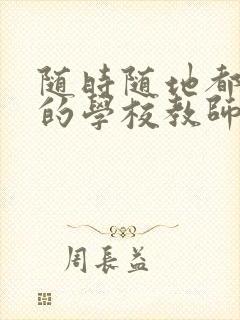 随時随地都
的學校教師
周長益